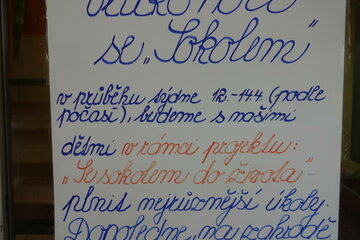 se „Sokolem"
v průběhu týdne 12.-14.4. (podle
počasí), budeme s našimi
dětmi v rámci projektu:
„Se sokolem do života"-
plnit nejrůznější úkoly.
Dopoledne „na zahradě